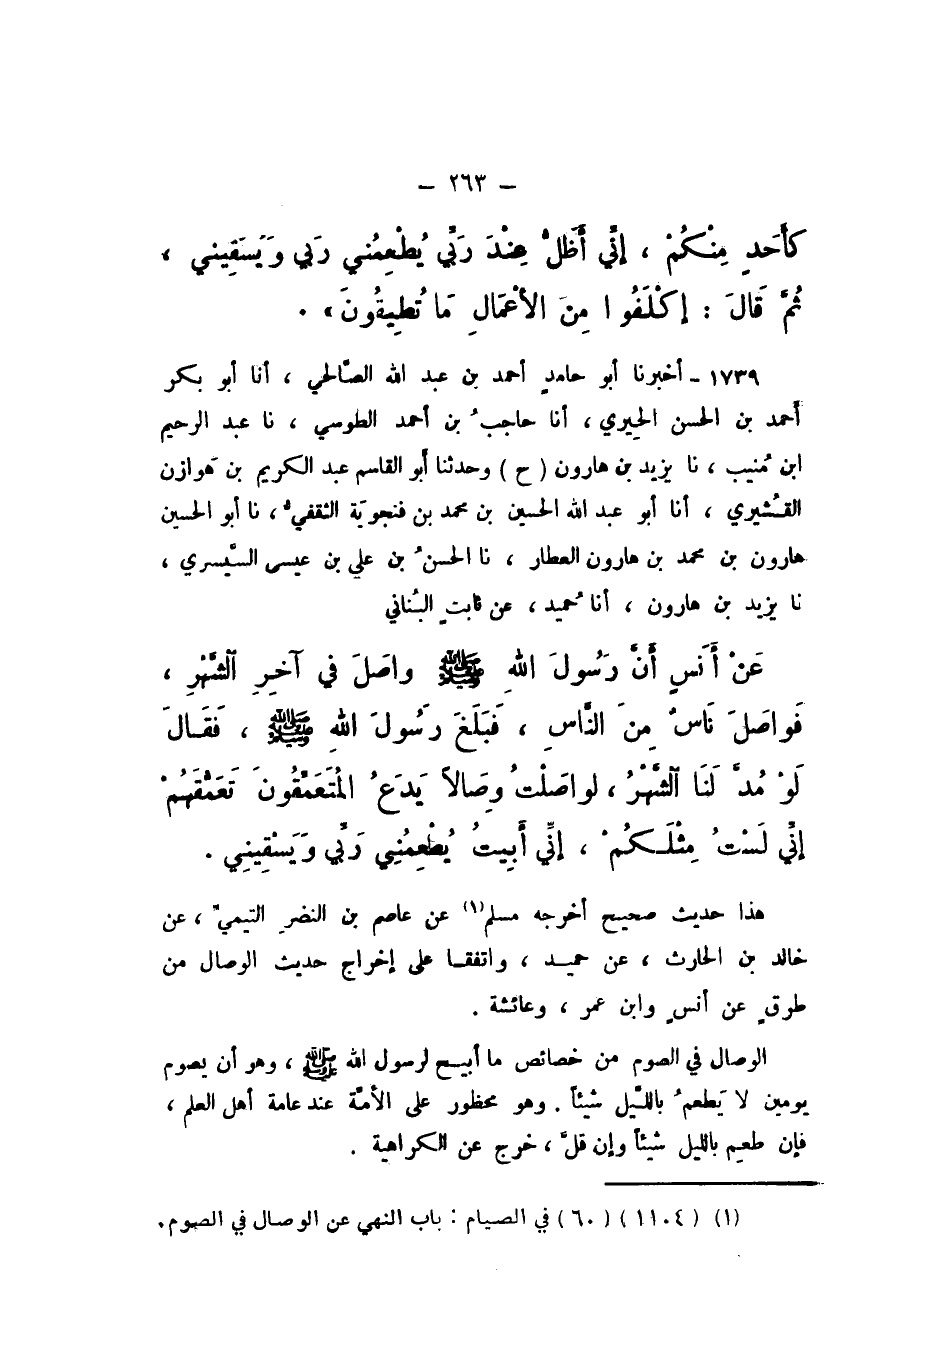 – ٢٦٣ –
كَأَحَدٍ مِنْكُمْ ، إِنِّي أَظَلُّ عِنْدَ رَبِّي يُطْعِمُني رَبي وَيَسقِيني ،
ثُمَّ قَالَ : إكْلَفُوا مِنَ الأعْمَالِ مَا تُطِيقُونَ» .
١٧٣٩ - أخبرنا أبو حامدٍ أحمد بن عبد الله الصَّالحي ، أنا أبو بكر
أحمد بن الحسن الحِيري ، أنا حاجبُ بن أحمد الطوسي ، نا عبد الرحيم
ابن مُنيب ، نا يزيد بن هارون ( ح ) وحدثنا أبو القاسم عبد الكريم بن هَوازن
القُشيري ، أنا أبو عبد الله الحسين بن محمد بن فنجويَة الثقفيُ ، نا أبو الحسين
هارون بن محمد بن هارون العطار ، نا الحسنُ بن علي بن عيسى السِّيسري ،
نا يزيد بن هارون ، أنا حُميد ، عن ثابتٍ البُناني
عَنْ أَنَسٍ أَنَّ رَسُولَ اللهِ ﷺ واصَلَ في آخِرِ الشَّهْرِ ،
فَواصَلَ نَاسٌ مِنَ النَّاسِ ، فَبَلَغَ رَسُولَ اللهِ ﷺ ، فَقَالَ
لَوْ مُدَّ لَنَا الشَّهْرُ ، لواصَلْتُ وِصَالاً يَدَعُ المُتَعَمِّقُونَ تَعَمُّقَهُمْ
إنِّي لَسْتُ مِثْلَكُمْ ، إنِّي أَبِيتُ يُطْعِمُنِي رَبِّي وَيَسْقِينِي .
هذا حديث صحيح أخرجه مسلم(١) عن عاصم بن النضرِ التيميّ ، عن
خالد بن الحارث ، عن حميد ، واتفقا على إخراج حديث الوصال من
طرقٍ عن أنسٍ وابن عمر ، وعائشة .
الوصال في الصوم من خصائص ما أبيح لرسول الله ﷺ ، وهو أن يصوم
يومين لا يَطعمُ بالليل شيئاً . وهو محظور على الأمَّة عند عامة أهل العلم ،
فإن طعِم بالليل شيئاً وإن قلَّ ، خرج عن الكراهية .
(١) ( ١١٠٤ ) ( ٦٠ ) في الصيام : باب النهي عن الوصال في الصوم .